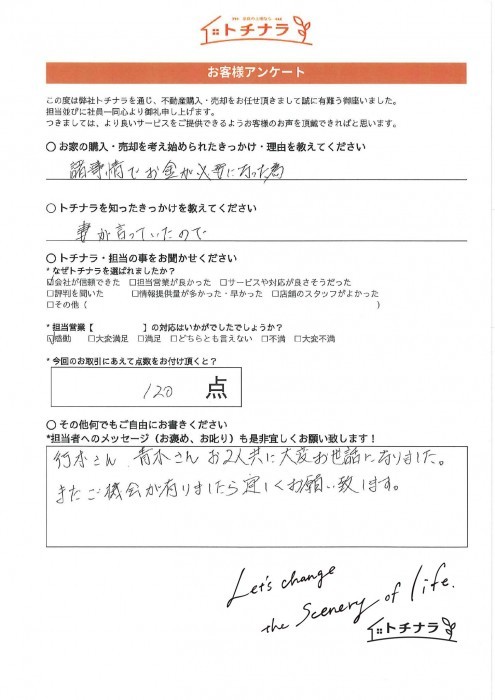 トチナラ
お客様アンケート
この度は弊社トチナラを通じ、不動産購入・売却をお任せ頂きまして誠に有難う御座いました。
担当並びに社員一同心より御礼申し上げます。
つきましては、より良いサービスをご提供できるようお客様のお声を頂戴できればと思います。
〇 お家の購入・売却を考え始められたきっかけ・理由を教えてください
諸事情でお金が必要になった為
〇 トチナラを知ったきっかけを教えてください
妻が言っていたので
〇 トチナラ・担当の事をお聞かせください
* なぜトチナラを選ばれましたか？
☑会社が信頼できた □担当営業が良かった □サービスや対応が良さそうだった
□評判を聞いた □情報提供量が多かった・早かった □店舗のスタッフがよかった
□その他（ ）
* 担当営業【 】の対応はいかがでしたでしょうか？
☑感動 □大変満足 □満足 □どちらとも言えない □不満 □大変不満
* 今回のお取引にあえて点数をお付け頂くと？
120 点
〇 その他何でもご自由にお書きください
*担当者へのメッセージ（お褒め、お叱り）も是非宜しくお願い致します！
竹本さん、青木さん お2人共に大変お世話になりました。
またご機会が有りましたら宜しくお願い致します。
Let's change
the Scenery of life.
トチナラ